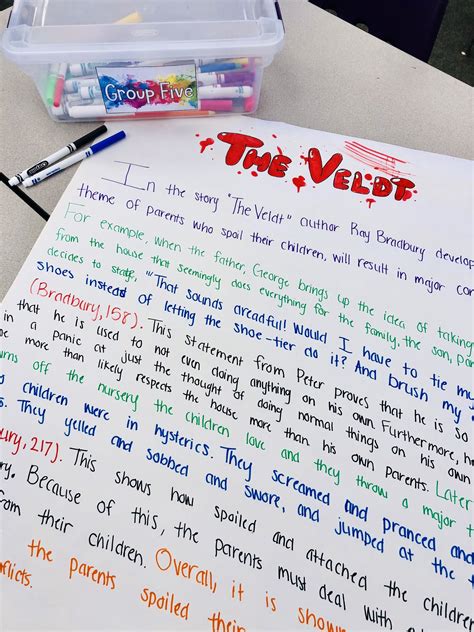 Group Five
THE VELDT
In the story "The Veldt" author Ray Bradbury develop
theme of parents who spoil their children, will result in major con
For example, when the father, George brings up the idea of taking
from the house that seemingly does everything for the family, the son, Pe
decides to state, "That sounds dreadful! Would I have to tie my
shoes instead of letting the shoe-tier do it? And brush my
(Bradbury, 158). This statement from Peter proves that he is so
in that he is used to not even doing anything on his own. Furthermore, he
in a panic at just the thought of doing normal things on his own
more than likely respects the house more than his own parents. Later
turns off the nursery the children love and they throw a major t
children were in hysterics. They screamed and pranced and
s. They yelled and sobbed and swore, and jumped at the
ury, 217). This shows how spoiled and attached the children
ry. Because of this, the parents must deal with
from their children. Overall, it is shown
the parents spoiled their
nflicts.